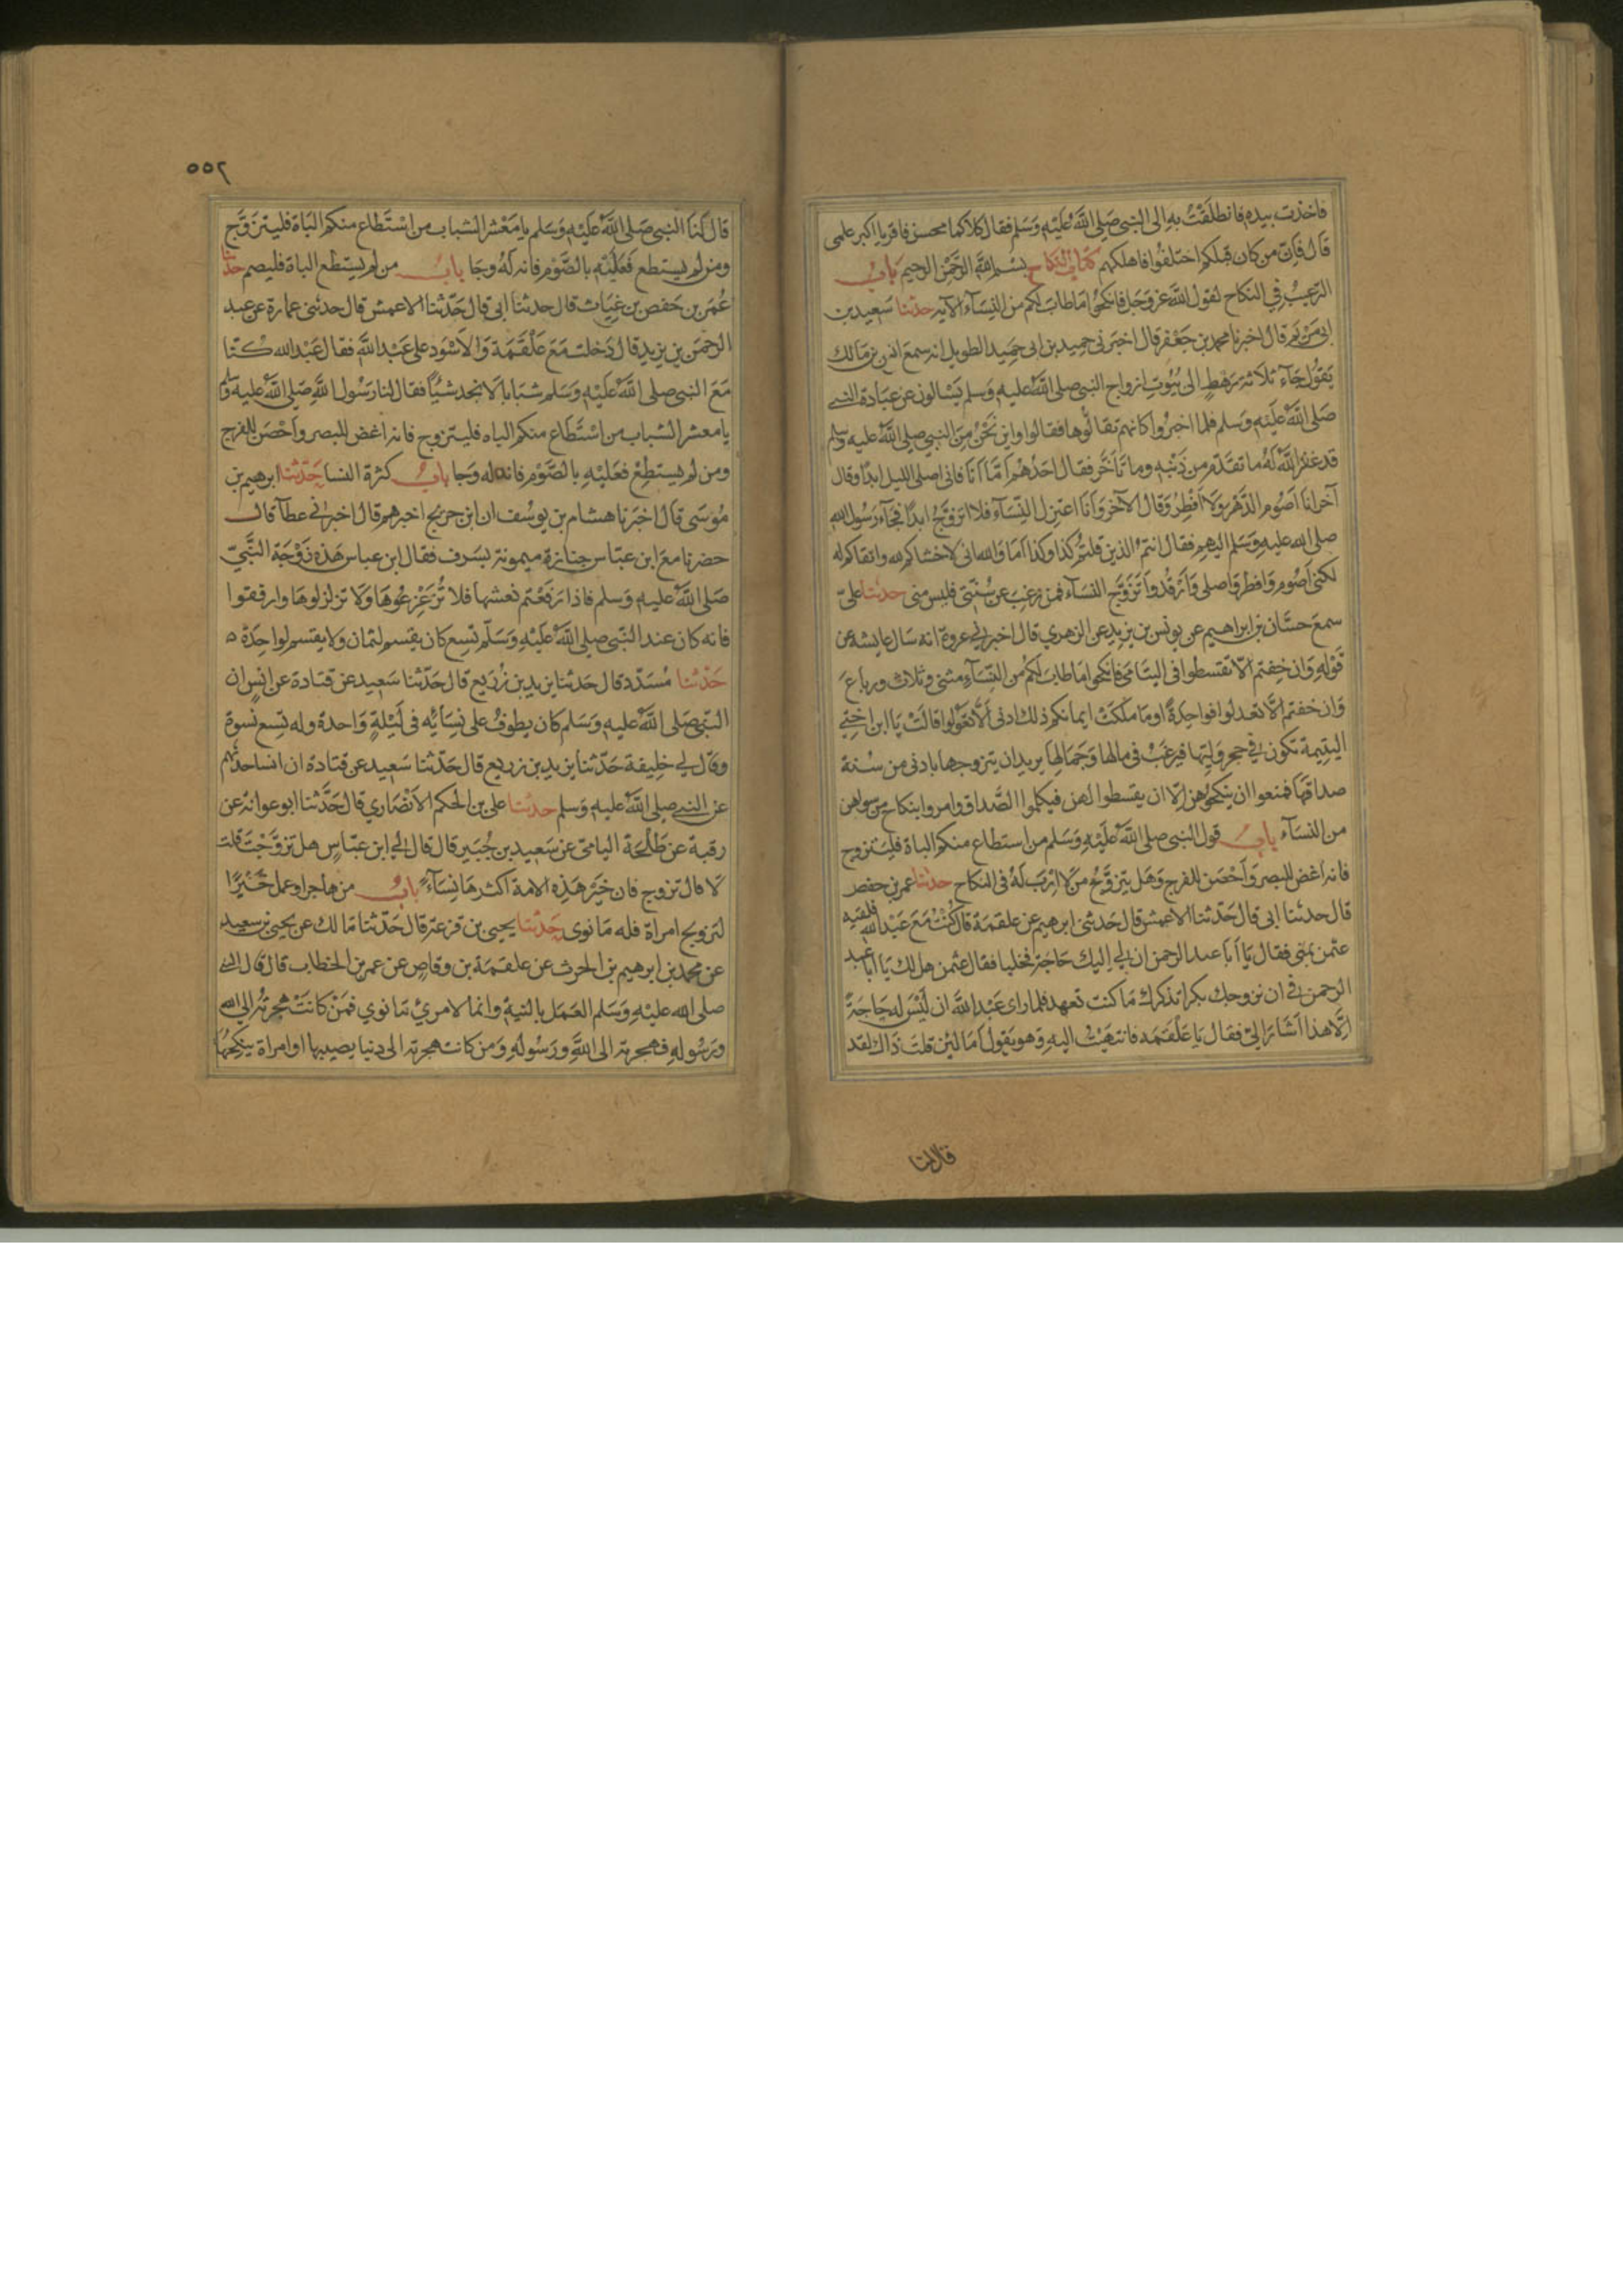 فاخذت بيده فانطلَقْتُ به الى النبى صَلى اللَّه عليْه وَسَلم فقال كلاكما محسن فاقريا اكبر علمى
قَال فَاِنّ من كان قبلكم اختلفُوا فاهلكهم كتاب النكاح بسْم اللَّه الرَّحْمن الرحيم بَابُ
الترغيبُ فِي النكاح لقول اللَّه عزوَجَل فانكحُوا مَاطابَ لكم من النِّسَآء الآيه حدثنا سَعِيد بن
ابى مَرْيم قَال اخبرنا محمد بن جَعْفر قال اخبَرنى حميد بن ابى حميد الطويل انه سمعَ انس بن مَالك
يَقول جَآء ثلاثة رَهطٍ الى بُيُوتِ ازواج النبى صلى اللَّه عليه وَسلم يَسْالون عن عبَادة النبي
صَلى اللَّه عَليْه وَسَلم فلما اخبرُوا كانهم تقالّوها فقالوا واين نَحْنُ مِنَ النبى صلى اللَّه عليه وسلم
قد غفرَ اللَّه لَهُ ما تقدّم من ذَنْبِه وما تاَخَّر فقال احَدُهُمْ اَمَّا اَنَا فانى اصلى الليل ابدًا وقال
آخر انا اَصُوم الدَّهْرَ وَلَا اُفْطِرُ وَقال الآخر وَاَنَا اعتزل النِّسَآء فلا اتزوَّجُ ابدًا فجَآء رَسُول الله
صلى الله عليه وَسَلم اليهم فقال انتم الذين قلتُمْ كذا وَكذا اَمَا وَالله انى لاخشاكم لله واتقاكم له
لكنى اَصُوم وَافطر وَاصلى وَاَرْقُدُ واَتزوَّج النسَآء فمن رغِبَ عن سُنَّتى فليس منى حدثنا علىّ
سمعَ حسَّان بن ابراهيم عن يونس بن يزيد عن الزهري قال اخبرني عروة انه سَال عايشه عن
قَوْلِه وَان خِفتم الّا تقسطوا فى اليتَامَى فانكحوا مَاطابَ لكُم من النِّسَآءِ مثنى وثلاث ورباعَ
وَان خفتم الَّا تعدلوا فواحِدَةً اومَا ملكَتْ ايمانكم ذلك ادنى اَلَّا تعُولوا قالَتْ يَا ابن اختي
اليتِيمة تكون في حجر وَلِيّها فيرغَبُ فى مالها وَجَمَالِها يريد ان يتزوجها بادنى من سُنة
صداقِهَا فمنعوا ان ينكحُوهن اِلّا ان يقسطوا لهن فيكملوا الصَّداق وامروا بنكاح من سواهن
من النسَآء بابُ قول النبى صلى اللَّه عَلَيْه وَسَلم من استطاع منكم الباة فليتزوج
فانه اغض للبصر وَاَحْصَن للفرج وَهَل يتزوَّجُ من لا اِرَبَ لَهُ فى النكاح حدثنا عمر بن حفص
قال حدثنا ابى قال حَدَّثنا الاعمش قال حَدثنى ابرهيم عن علقمَة قال كُنْتُ مَعَ عَبْد الله فلقيه
عثمن بمنى فقال يَا اَبا عبد الرحمن ان لي اِليك حَاجَة فخليا فقال عثمن هل لك يَا اَبا عبد
الرحمن في ان نزوجك بكرا تذكرك مَا كنت تعهد فلما راى عَبْد اللَّه ان لَيْسَ له حَاجَةً
اِلَّا هذا اَشَارَ اليَّ فقال يَا عَلْقَمَه فانتهَيْتُ اليه وَهو يَقول اَمَا لئن قلتَ ذَاك لقد
قال لنا
٥٥٢
قال لَنَا النبى صَلى اللَّه عَليْه وَسَلم يا مَعْشر الشباب من اسْتَطاع منكم البَاة فليتزوَّج
ومن لم يستطع فَعَلَيْه بالصَّوْم فانه لَهُ وجَا بابُ من لم يستطع الباة فليصم حدثنا
عُمَر بن حَفص بن غِيَاث قال حدثنا ابى قال حَدّثنا الاعمش قال حدثنى عمارة عن عبد
الرحمَن بن يزيد قال دَخلت مَعَ علقَمَة وَالاسْوَد على عَبْد اللَّه فقال عَبْد الله كنّا
مَعَ النبى صلى اللَّه عَلَيْه وَسَلم شبَابا لَا نجد شيْاً فقال لنا رَسُول اللَّه صَلى اللَّه عليه وَسلم
يا معشر الشباب من اسْتَطَاع منكم الباه فليتزوج فانه اغض للبصر واَحْصَن للفرج
ومن لم يستطِعْ فعَليْهِ بالصَّوْم فانه له وَجا بابُ كثرة النسا حَدّثنا ابرهيم بن
مُوسَى قَال اخبَرنا هشام بن يوسُف ان ابن جريج اخبرهم قال اخبرنى عطآ قال
حضرنا معَ ابن عبّاس جنازة ميمونة بسَرف فقال ابن عباس هَذه زَوْجَة النَّبىّ
صَلى اللَّه عليه وَسلم فاذا رَفَعْتم نعشها فلا تُزَعْزِعُوهَا وَلا تزلزلوهَا وارفقوا
فانه كان عند النّبى صلى اللَّه عَلَيْه وَسَلّم تِسع كان يقسم لثمان ولا يقسم لواحِدَة ه
حَدّثنا مُسَدّد قال حَدثنا يزيد بن زُرَيع قال حَدّثنا سَعِيد عن قتادة عن انسٍ ان
النّبى صَلى اللَّه عليه وَسَلم كان يطوفُ على نِسَائِه فى لَيْلةٍ وَاحدة وله تِسع نسوة
وقال لي خلِيفة حَدّثنا يزيد بن زريع قال حَدّثنا سَعيد عن قتادة ان انسا حدثهم
عن النبي صلى اللَّه عليه وَسلم حدثنا على بن الحكم الانْصَاري قال حَدَّثنا ابو عوانة عن
رقبة عن طَلْحَة اليامىّ عن سَعِيد بن جُبَير قال قال لي ابن عبّاسٍ هل تزوَّجْتَ قلت
لَا قال تزوج فان خَيْرَ هَذِه الامة اكثرهَا نِسَآءً بابُ من هاجر او عمل خَيْرًا
لتزويج امراة فله مَا نوى حَدّثنا يحيى بن قزعة قال حَدّثنا مَالك عن يحيى بن سعيد
عن محمد بن ابرهيم بن الحرث عن علقمَة بن وقاصٍ عن عمر بن الخطاب قال قال النبي
صلى الله عليْه وَسَلم العَمَل بالنية وانما لامرئ مَا نوي فمَنْ كانَتْ هجرتُه الى الله
ورَسُوله فهجرته الى اللَّهِ ورَسُولهِ وَمن كانت هجرته الى دنيا يصيبها او امراة ينكحُها